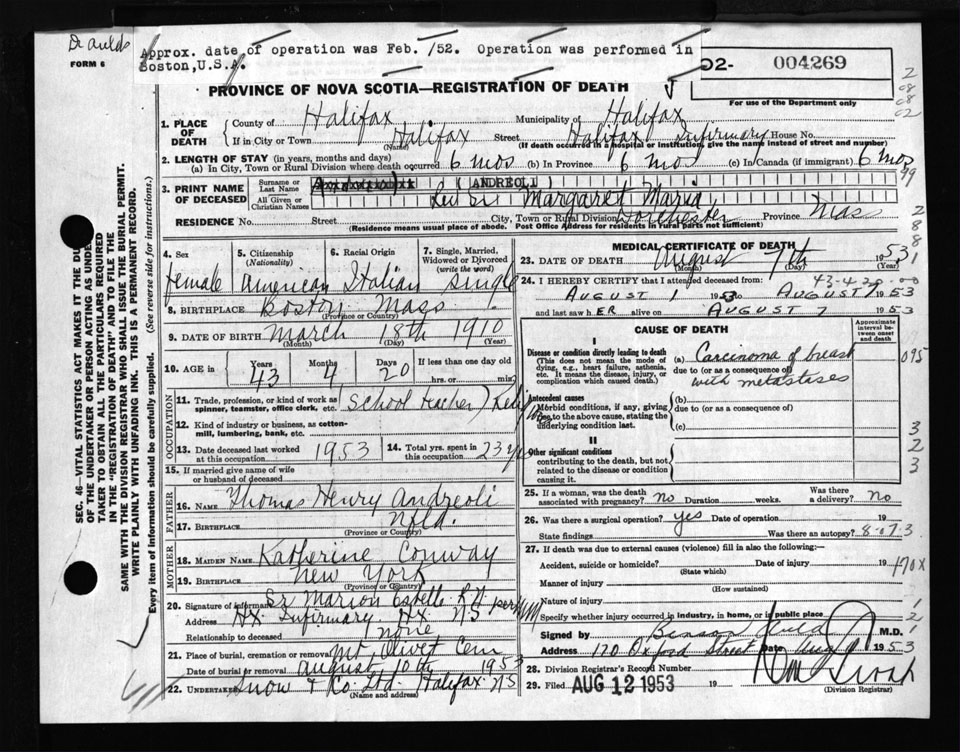 Dr Aulds
FORM 6
Approx. date of operation was Feb. /52. Operation was performed in
Boston,U.S.A.
O2- 004269
For use of the Department only
PROVINCE OF NOVA SCOTIA—REGISTRATION OF DEATH
1. PLACE OF DEATH
County of Halifax Municipality of Halifax
If in City or Town Halifax Street Halifax Infirmary House No.
(Name) (If death occurred in a hospital or institution, give the name instead of street and number)
2. LENGTH OF STAY (in years, months and days)
(a) In City, Town or Rural Division where death occurred 6 mos (b) In Province 6 mos (c) In Canada (if immigrant) 6 mos
3. PRINT NAME OF DECEASED
Surname or Last Name (ANDREOLI)
All Given or Christian Names Margaret Maria
RESIDENCE No. Street City, Town or Rural Division Dorchester Province Mass
(Residence means usual place of abode. Post Office Address for residents in rural parts not sufficient)
4. Sex female
5. Citizenship (Nationality) American
6. Racial Origin Italian
7. Single, Married, Widowed or Divorced (write the word) Single
8. BIRTHPLACE Boston Mass
(Province or Country)
9. DATE OF BIRTH March 18th 1910
(Month) (Day) (Year)
10. AGE in Years 43 Months 4 Days 20 If less than one day old
hrs. or min.
OCCUPATION
11. Trade, profession, or kind of work as spinner, teamster, office clerk, etc. (School teacher)
12. Kind of industry or business, as cotton-mill, lumbering, bank, etc.
13. Date deceased last worked at this occupation 1953
14. Total yrs. spent in this occupation 23 yrs
15. If married give name of wife or husband of deceased
FATHER
16. NAME Thomas Henry Andreoli
17. BIRTHPLACE Nfld.
(Province or Country)
MOTHER
18. MAIDEN NAME Katherine Conway
19. BIRTHPLACE New York
(Province or Country)
20. Signature of informant Sr Marion Estelle R.N.
Address Hx Infirmary, Hx NS
Relationship to deceased None
21. Place of burial, cremation or removal Mt Olivet Cem
Date of burial or removal August 10th 1953
22. UNDERTAKER Snow & Co. Ltd. Halifax NS
(Name and address)
MEDICAL CERTIFICATE OF DEATH
23. DATE OF DEATH August 7th 1953
(Month) (Day) (Year)
24. I HEREBY CERTIFY that I attended deceased from
AUGUST 1 1953 to AUGUST 7 1953
and last saw HER alive on AUGUST 7 1953
CAUSE OF DEATH
Approximate interval between onset and death
I
Disease or condition directly leading to death
(This does not mean the mode of dying, e.g., heart failure, asthenia, etc. It means the disease, injury, or complication which caused death.)
(a) Carcinoma of breast
due to (or as a consequence of)
with metastases
095
Antecedent causes
Morbid conditions, if any, giving rise to the above cause, stating the underlying condition last.
(b)
due to (or as a consequence of)
(c)
II
Other significant conditions
contributing to the death, but not related to the disease or condition causing it.
25. If a woman, was the death associated with pregnancy? no Duration weeks. Was there a delivery? no
26. Was there a surgical operation? yes Date of operation 19
State findings Was there an autopsy?
27. If death was due to external causes (violence) fill in also the following:—
Accident, suicide or homicide? Date of injury 19
(State which)
170X
Manner of injury
(How sustained)
Nature of injury
Specify whether injury occurred in industry, in home, or in public place
Signed by Benson Auld M.D.
Address 170 Oxford Street Date Aug 1953
28. Division Registrar's Record Number
29. Filed AUG 12 1953 19
(Division Registrar)
SEC. 46—VITAL STATISTICS ACT MAKES IT THE DU
OF THE UNDERTAKER OR PERSON ACTING AS UNDE
TAKER TO OBTAIN ALL THE PARTICULARS REQUIRED
IN THE "REGISTRATION OF DEATH" AND TO FILE THE
SAME WITH THE DIVISION REGISTRAR WHO SHALL ISSUE THE BURIAL PERMIT.
WRITE PLAINLY WITH UNFADING INK. THIS IS A PERMANENT RECORD.
Every item of information should be carefully supplied. (See reverse side for instructions.)